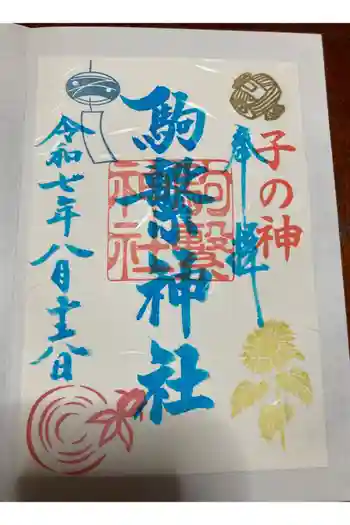 子の神
奉拝
駒繋神社
駒繋神社
令和七年八月十八日